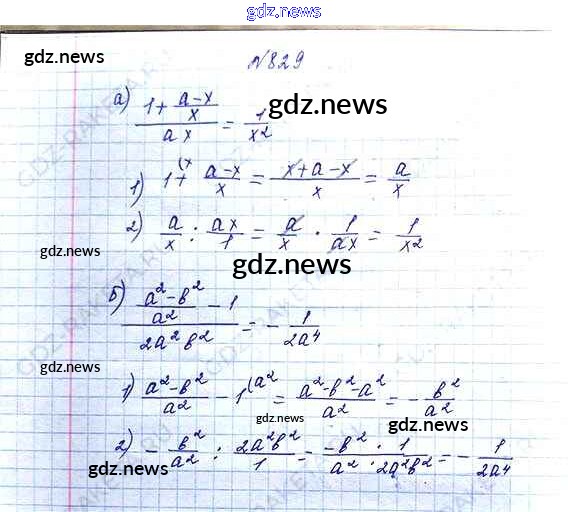 gdz.news
№829
gdz.news
а) (1 + (a-x)/x)/(ax) = 1/x²
gdz.news
1) 1^(x + (a-x)/x = (x+a-x)/x = a/x
2) a/x : ax/1 = a/x · 1/ax = 1/x²
gdz.news
gdz.news
б) ((a²-b²)/a² - 1)/(2a²b²) = - 1/2a⁴
gdz.news
1) (a²-b²)/a² - 1^(a² = (a²-b²-a²)/a² = - b²/a²
gdz.news
gdz.news
2) - b²/a² : 2a²b²/1 = (-b² · 1)/(a² · 2a²b²) = - 1/2a⁴
gdz.news
gdz.news
GDZ-RAKETA.RU